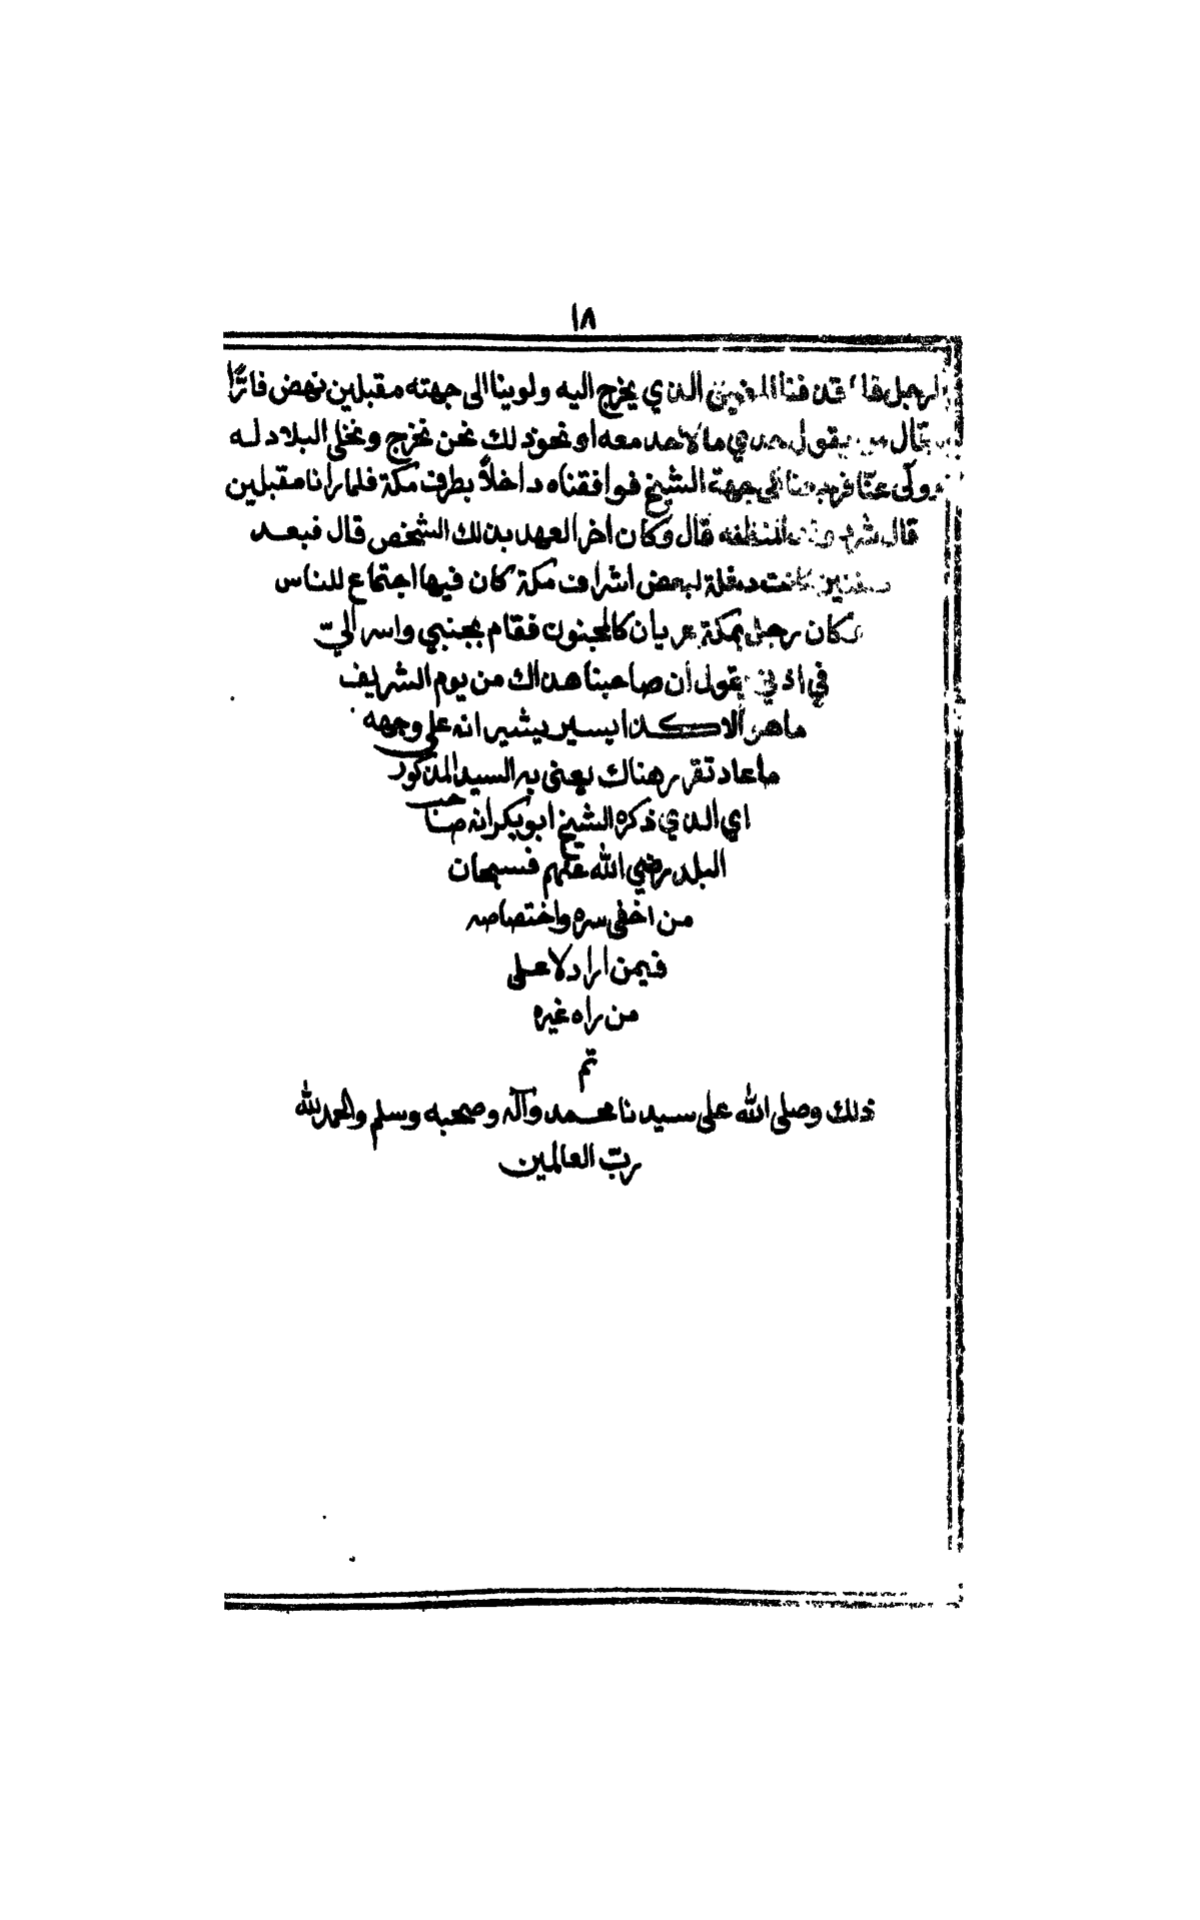 ١٨
الرجل قا قد فتنا الذي يخرج اليه ولوينا الى جهته مقبلين نهض فائرًا
قال يقول سيدي ما لاحد معه او نحو ذلك نحن نخرج ونخلي البلاد له
وولى عنّا فرجعنا الى جهة الشيخ فوافقناه داخلاً بطرف مكة فلما رانا مقبلين
قال قال وكان اخر العهد بذلك الشخص قال فبعد
سنين كانت دخلة لبعض اشراف مكة كان فيها اجتماع للناس
فكان رجل بمكة عريان كالمجنون فقام بجنبي واسر اليّ
في اذني يقول ان صاحبنا هذاك من يوم الشريف
ما هو الا كذا يسير يشير انه على وجهه
ما عاد تقرر هناك يعني به السيد المذكور
اي الذي ذكره الشيخ ابو بكر انه صاحب
البلد رضي الله عنهم فسبحان
من اخفى سره واختصاصه
فيمن اراد لا على
من راه غيره
تم
ذلك وصلى الله على سيدنا محمد وآله وصحبه وسلم والحمد لله
ربّ العالمين